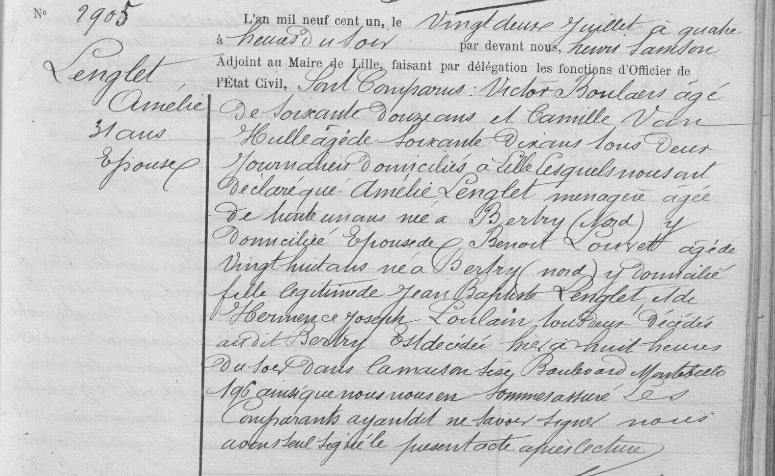 N° 2905
Lenglet
Amélie
31 ans
Epouse
L'an mil neuf cent un, le Vingt deux Juillet à quatre
à heures du soir par devant nous, henri Samson
Adjoint au Maire de Lille, faisant par délégation les fonctions d'Officier de
l'État Civil, Sont Comparus : Victor Boulaers âgé
de soixante douze ans et Camille Van
Hulle âgé de soixante dix ans tous deux
Journaliers domiciliés à Lille lesquels nous ont
déclaré que Amélie Lenglet ménagère âgée
de trente un ans née à Bertry (Nord) y
domiciliée Epouse de Benoit Louvet âgé de
Vingt huit ans né à Bertry (nord) y domicilié
fille légitime de Jean Baptiste Lenglet, et de
Hermence Joseph Loulain tous deux décédés
au dit Bertry Est décédée hier à huit heures
du soir dans la maison sise, Boulevard Montebello
196 ainsi que nous nous en sommes assuré Les
Comparants ayant dit ne savoir signer nous
avons seul signé le présent acte après lecture